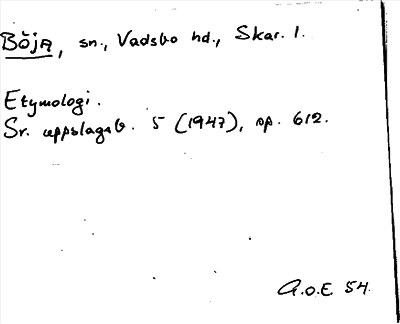 Böja, sn., Vadsbo hd., Skar. l.
Etymologi.
Sv. uppslagsb. 5 (1947), sp. 612.
A.o.E. 54.